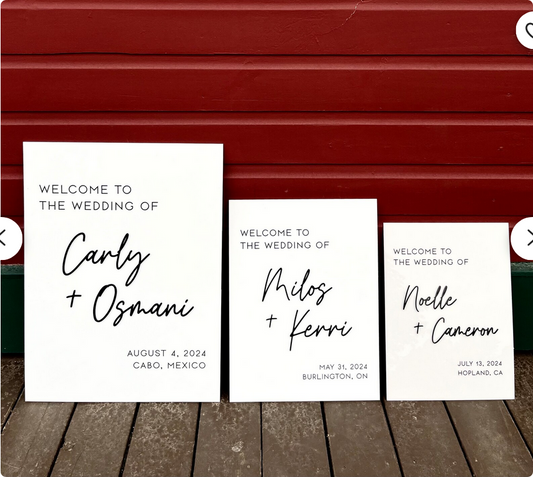 WELCOME TO
THE WEDDING OF
Carly
+ Osmani
AUGUST 4, 2024
CABO, MEXICO
WELCOME TO
THE WEDDING OF
Milos
+ Kerri
MAY 31, 2024
BURLINGTON, ON
WELCOME TO
THE WEDDING OF
Noelle
+ Cameron
JULY 13, 2024
HOPLAND, CA